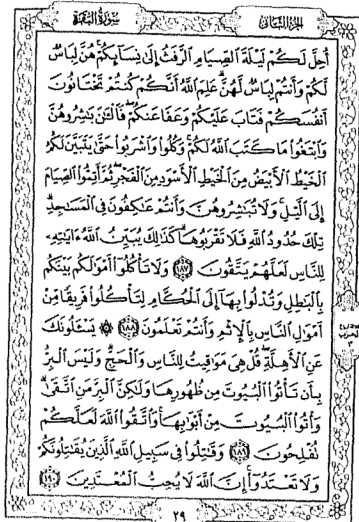 الجزء الثاني
سورة البقرة
أُحِلَّ لَكُمْ لَيْلَةَ الصِّيَامِ الرَّفَثُ إِلَىٰ نِسَآئِكُمْ هُنَّ لِبَاسٌ
لَّكُمْ وَأَنتُمْ لِبَاسٌ لَّهُنَّ عَلِمَ اللَّهُ أَنَّكُمْ كُنتُمْ تَخْتَانُونَ
أَنفُسَكُمْ فَتَابَ عَلَيْكُمْ وَعَفَا عَنكُمْ فَالْـَٰٔنَ بَـٰشِرُوهُنَّ
وَابْتَغُوا مَا كَتَبَ اللَّهُ لَكُمْ وَكُلُوا وَاشْرَبُوا حَتَّىٰ يَتَبَيَّنَ لَكُمُ
الْخَيْطُ الْأَبْيَضُ مِنَ الْخَيْطِ الْأَسْوَدِ مِنَ الْفَجْرِ ثُمَّ أَتِمُّوا الصِّيَامَ
إِلَى الَّيْلِ وَلَا تُبَـٰشِرُوهُنَّ وَأَنتُمْ عَـٰكِفُونَ فِي الْمَسَـٰجِدِ
تِلْكَ حُدُودُ اللَّهِ فَلَا تَقْرَبُوهَا كَذَٰلِكَ يُبَيِّنُ اللَّهُ ءَايَـٰتِهِ
لِلنَّاسِ لَعَلَّهُمْ يَتَّقُونَ ١٨٧ وَلَا تَأْكُلُوا أَمْوَٰلَكُم بَيْنَكُم
بِالْبَـٰطِلِ وَتُدْلُوا بِهَا إِلَى الْحُكَّامِ لِتَأْكُلُوا فَرِيقًا مِّنْ
أَمْوَٰلِ النَّاسِ بِالْإِثْمِ وَأَنتُمْ تَعْلَمُونَ ١٨٨ ۞ يَسْـَٔلُونَكَ
عَنِ الْأَهِلَّةِ قُلْ هِيَ مَوَٰقِيتُ لِلنَّاسِ وَالْحَجِّ وَلَيْسَ الْبِرُّ
بِأَن تَأْتُوا الْبُيُوتَ مِن ظُهُورِهَا وَلَـٰكِنَّ الْبِرَّ مَنِ اتَّقَىٰ
وَأْتُوا الْبُيُوتَ مِنْ أَبْوَٰبِهَا وَاتَّقُوا اللَّهَ لَعَلَّكُمْ
تُفْلِحُونَ ١٨٩ وَقَـٰتِلُوا فِي سَبِيلِ اللَّهِ الَّذِينَ يُقَـٰتِلُونَكُمْ
وَلَا تَعْتَدُوا إِنَّ اللَّهَ لَا يُحِبُّ الْمُعْتَدِينَ ١٩٠
٢٩